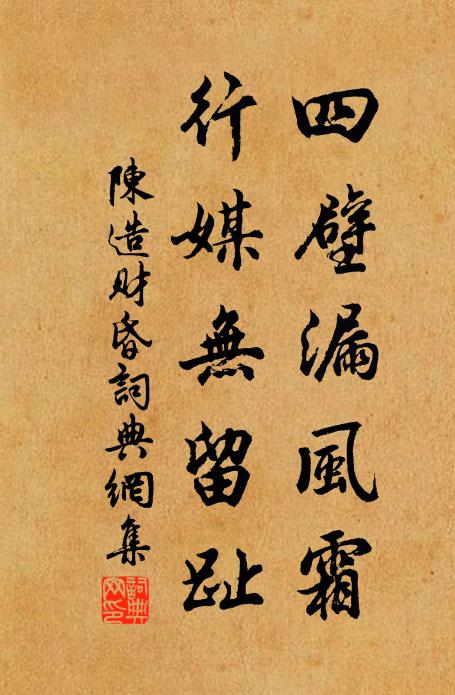 四壁漏風霜
行媒無留趾
陳造財昏詞典網集
詞典
网印